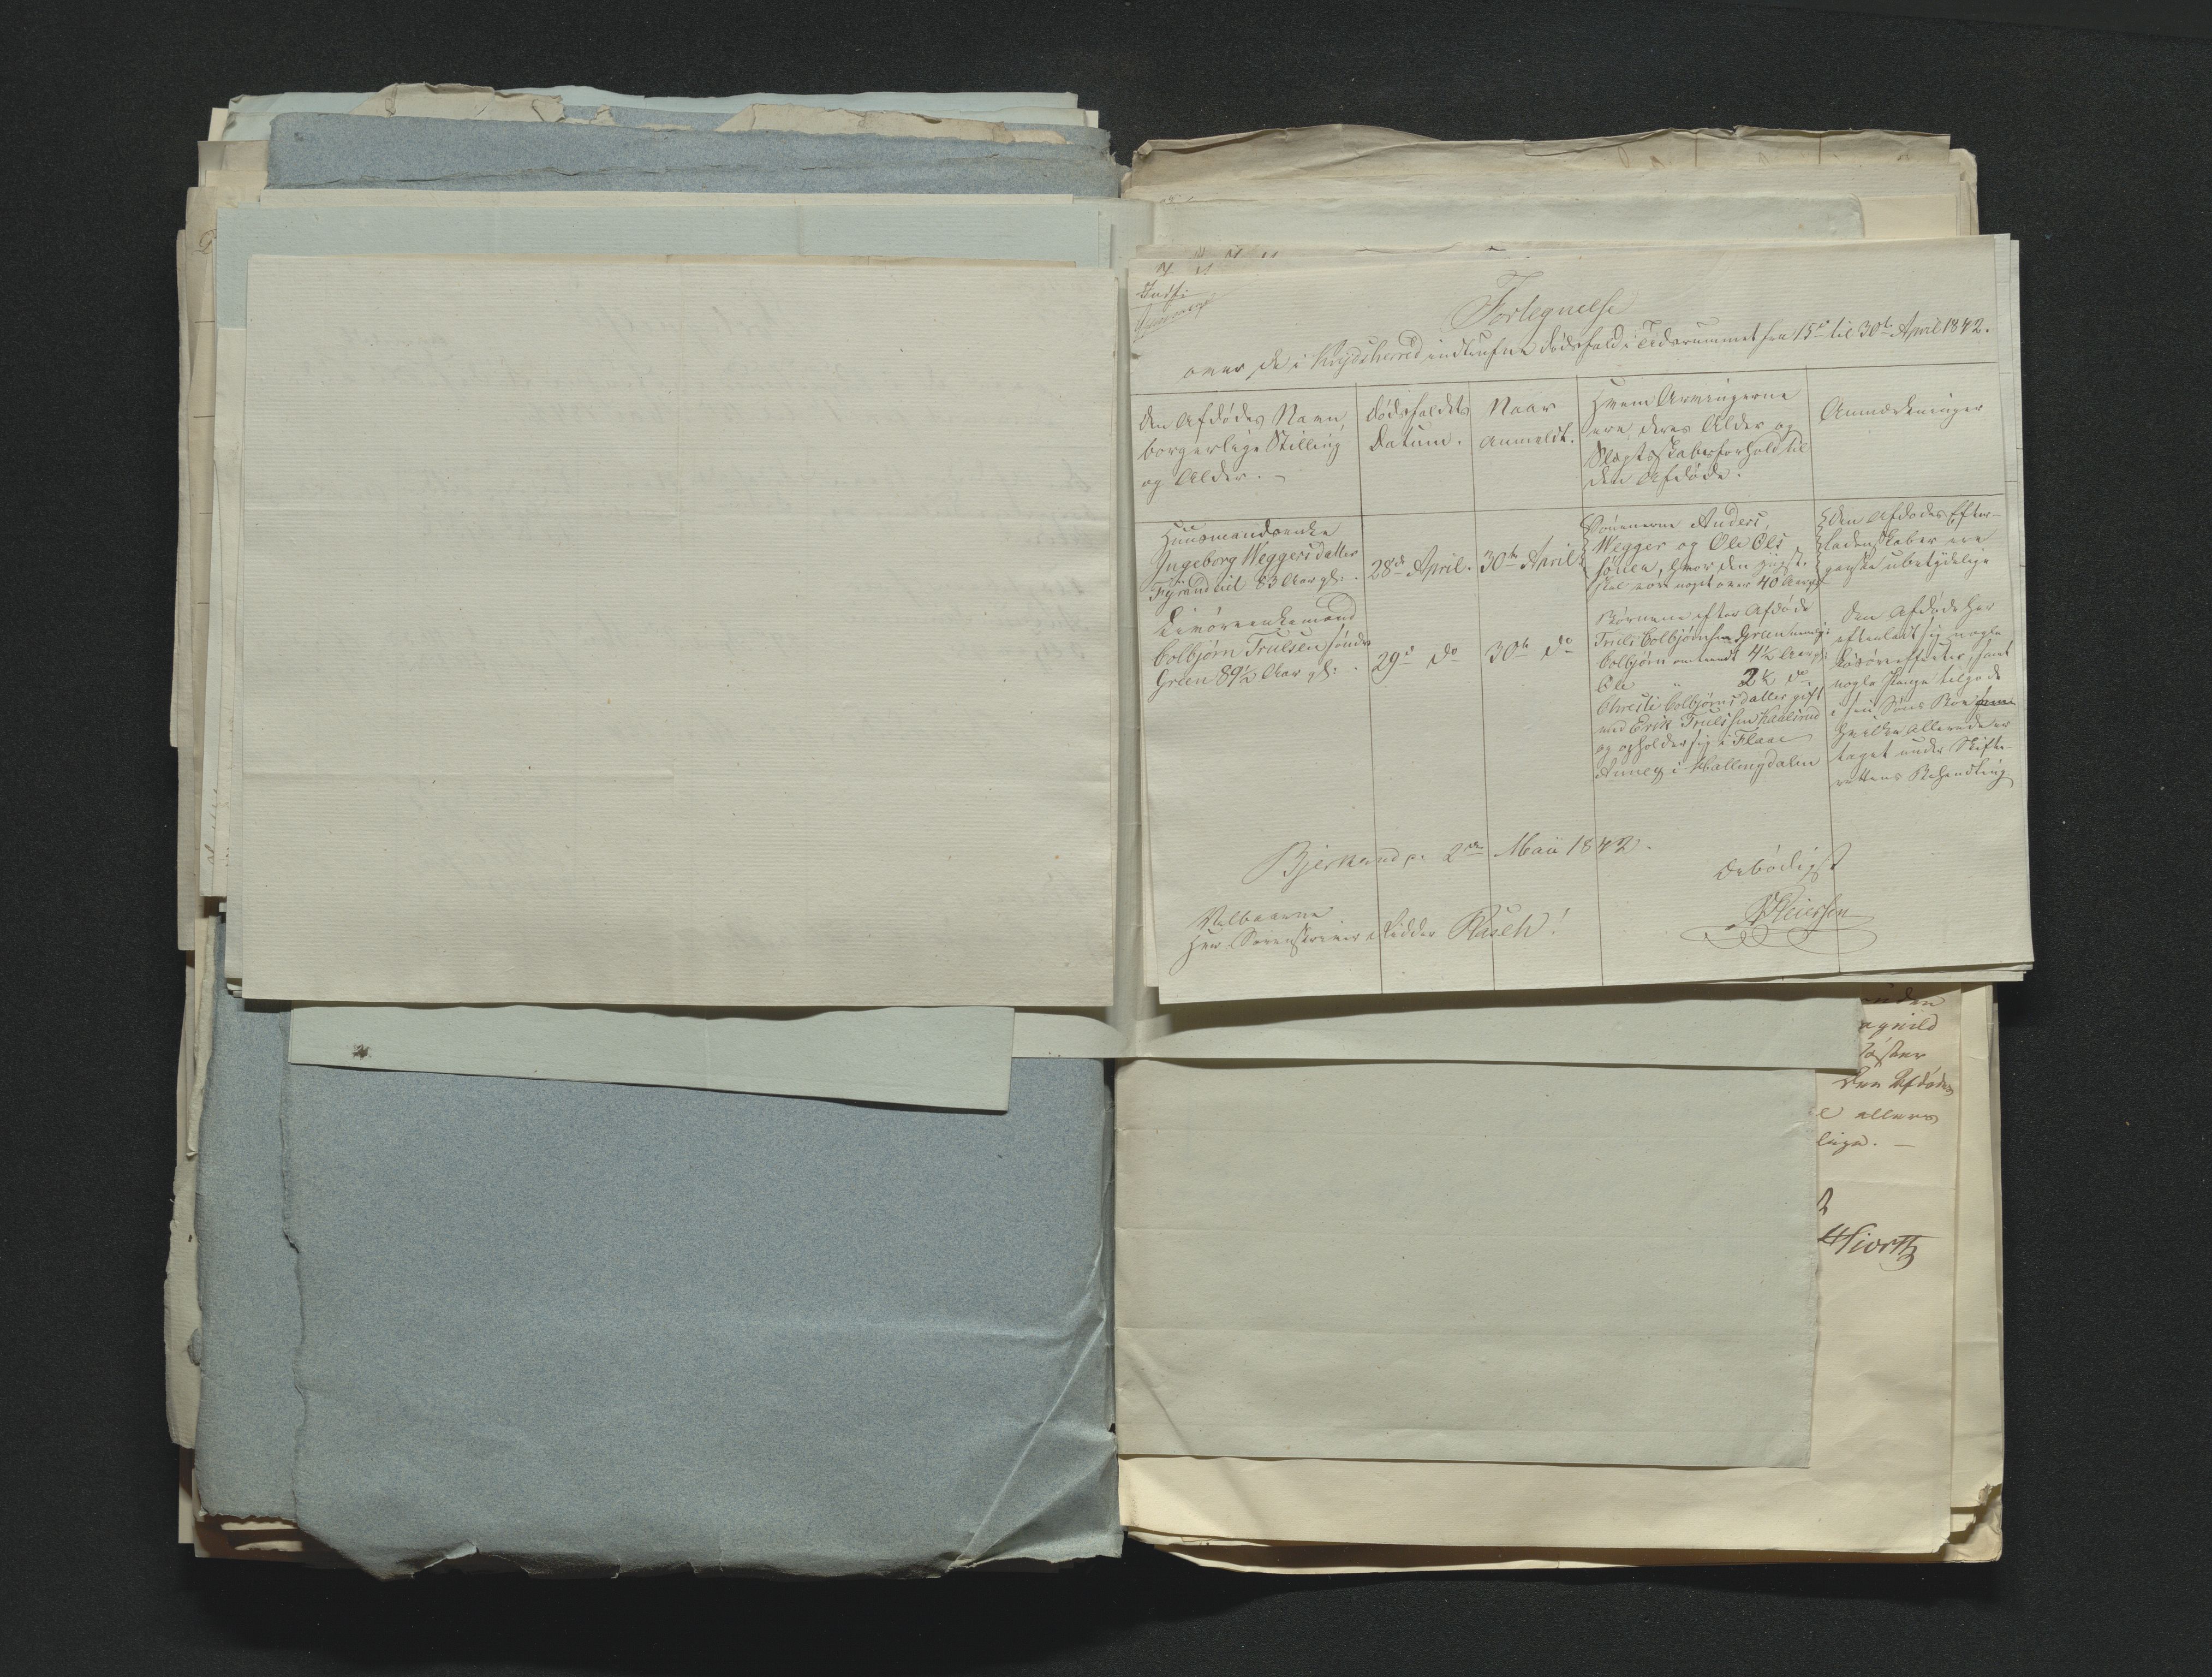 Indf:
Fortegnelse
over de i Krydsherred indtrufne Dødsfald i Tidsrummet fra 15de til 30te April 1842.
Den Afdødes Navn,
borgerlige Stilling
og Alder. –
Dødsfaldets
Datum.
Naar
anmeldt.
Hvem Arvingerne
ere, deres Alder og
Slægtskabsforhold til
den Afdøde.
Anmærkninger
Huusmandsenke
Ingeborg Weggersdatter
Fyrandlil 83 Aar gl:
28de April.
30te April
Sønnerne Anders,
Wegger og Ole Ols
sønner, hvor den yngste
skal være noget over 40 Aar gl
Den Afdødes Efter-
ladenskaber ere
ganske ubetydelige
Colbjørn Trulsen søndre
Green 89½ Aar gl:
29de do
30te do
Børnene efter Afdøde
Truls Colbjørnsen Green
Colbjørn omtrent 4½ Aar gl:
Ole " 2½ do
Christi Colbjørnsdatter gift
med Erik Trulssen Kaalsrud
og opholder sig i Flaae
Annex i Hallingdalen
Den Afdøde har
efterladt sig nogle
Løsøreeffecter, samt
nogle Penge tilgode
i sin Søns Boe
hvilken allerede er
taget under Skifte-
rettens Behandling
Bjerkerud p. 2den Maii 1842.
Ærbødigst
Velbaarne
Herr Sorenskriver & Ridder Rasch!
unden
agnild
Søster
den Afdødes
ellers
lige. –
Hiorth